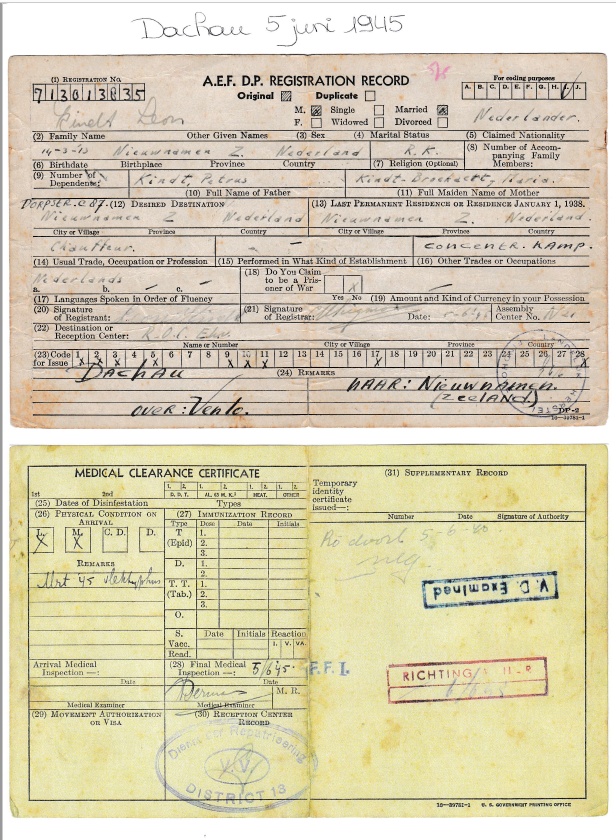 Dachau 5 juni 1945
(1) REGISTRATION NO.
A.E.F. D.P. REGISTRATION RECORD
For coding purposes
Original Duplicate
A. B. C. D. E. F. G. H. I. J.
M. Single Married
Kindt Leon Nederlander.
F. Widowed Divorced
(2) Family Name Other Given Names (3) Sex (4) Marital Status (5) Claimed Nationality
14-3-13 Nieuwnamen Z. Nederland R.K.
(6) Birthdate Birthplace Province Country (7) Religion (Optional) (8) Number of Accompanying Family Members:
(9) Number of Dependents: Kindt, Petrus Kindt-Brockaert, Maria.
(10) Full Name of Father (11) Full Maiden Name of Mother
DORPSTR. C 87. (12) DESIRED DESTINATION (13) LAST PERMANENT RESIDENCE OR RESIDENCE JANUARY 1, 1938.
Nieuwnamen Z Nederland Nieuwnamen Z. Nederland.
City or Village Province Country City or Village Province Country
Chauffeur. – CONCENTR. KAMP.
(14) Usual Trade, Occupation or Profession (15) Performed in What Kind of Establishment (16) Other Trades or Occupations
Nederlands
a. b. c.
(18) Do You Claim to be a Prisoner of War X
(17) Languages Spoken in Order of Fluency Yes No (19) Amount and Kind of Currency in your Possession
(20) Signature of Registrant: (21) Signature of Registrar: Date: Assembly Center No.
(22) Destination or Reception Center:
Name or Number City or Village Province Country
(23) Code for Issue 1 2 3 4 5 6 7 8 9 10 11 12 13 14 15 16 17 18 19 20 21 22 23 24 25 26 27 28
Dachau (24) REMARKS NAAR: Nieuwnamen.
(ZEELAND)
over: Venlo.
DP-2
16—39781-1
MEDICAL CLEARANCE CERTIFICATE
(31) SUPPLEMENTARY RECORD
1. 2. 1. 2. 1. 2. 1. 2.
1st 2nd D. D. T. AL. 63 M. K.³ HEAT. OTHER
Temporary identity certificate issued—:
(25) Dates of Disinfestation Types
(26) PHYSICAL CONDITION ON ARRIVAL (27) IMMUNIZATION RECORD
Number Date Signature of Authority
L. M. C. D. D.
X X
Type Dose Date Initials Dose Date Initials
T (Epid) 1. 2.
D. 1. 2. 3.
T. T. (Tab.) 1. 2. 3.
O.
REMARKS
Mrt '45 vlektyphus
5-6-
V. D. Examined
S. Vacc. Date Initials Reaction
I. V. VA.
Read.
Arrival Medical Inspection —: (28) Final Medical Inspection —: 5/6 45. F.F.I.
Date Date
M. R.
Medical Examiner Medical Examiner
RICHTING
(29) MOVEMENT AUTHORIZATION OR VISA (30) RECEPTION CENTER RECORD
Dienst der Repatrieering
DISTRICT 13
16—39781-1 U. S. GOVERNMENT PRINTING OFFICE